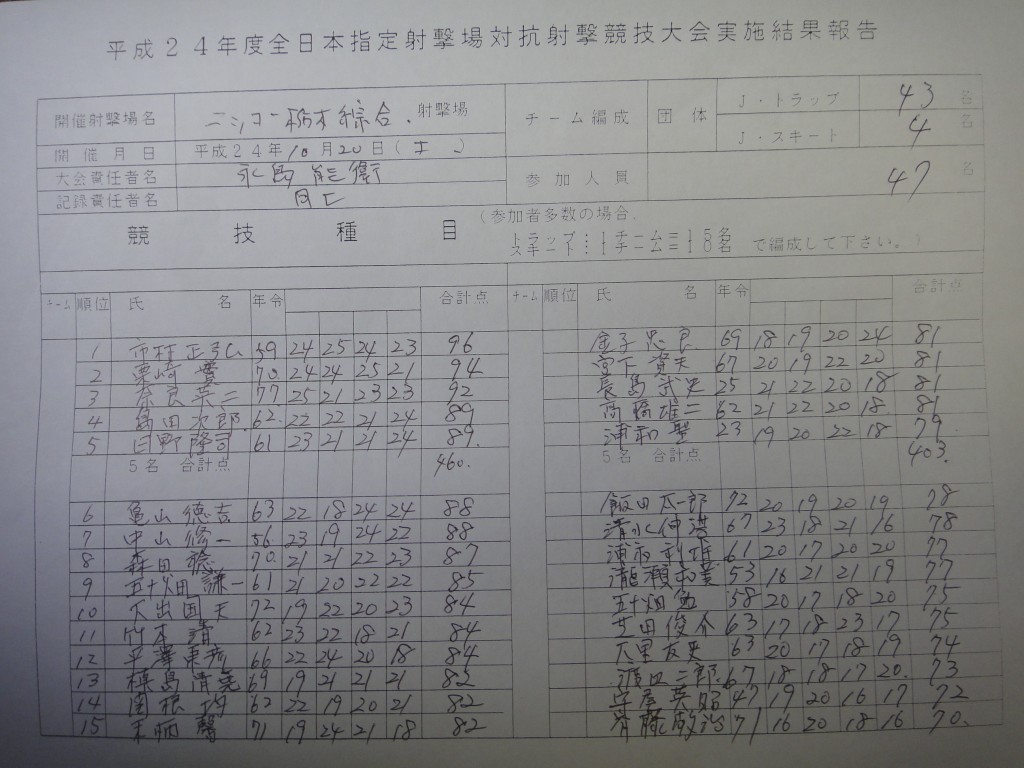 平成24年度全日本指定射撃場対抗射撃競技大会実施結果報告
開催射撃場名 ニッコー栃木綜合. 射撃場 チーム編成 団体 J・トラップ 43 名
J・スキート 4 名
開催月日 平成24年10月20日(土)
大会責任者名 永島 能衛 参加人員 47 名
記録責任者名 同上
競技種目 (参加者多数の場合.
トラップ:1チーム=15名
スキート:1チーム=10名 で編成して下さい。)
チーム 順位 氏名 年令 合計点 チーム 順位 氏名 年令 合計点
1 市村 正弘 59 24 25 24 23 96 金子 忠良 69 18 19 20 24 81
2 栗崎 70 24 24 25 21 94 宮下 資夫 67 20 19 22 20 81
3 奈良 英二 77 25 21 23 23 92 長島 25 21 22 20 18 81
4 島田 次郎. 62 22 22 21 24 89 高橋 雄二 62 21 22 20 18. 81
5 日野 隆司 61 23 21 21 24 89. 浦和 聖 23 19 20 22 18 79
5名 合計点 460. 5名 合計点 403.
6 亀山 徳吉 63 22 18 24 24 88 飯田 太一郎 72 20 19 20 19 78
7 中山 修一 56. 23 19 24 22 88 清水 67 23 18 21 16 78
8 森田 稔 70. 21 21 22 23 87 浦和 利雄 61 20 17 20 20 77
9 五十畑 謙一 61 21 20 22 22 85 瀧瀬 53 16 21 21 19 77
10 大出 国夫 72 19 22 20 23 84 五十畑 58 20 17 18 20 75
11 竹本 清 62 23 22 18 21 84 芝田 俊介 63 17 18 23 17 75
12 平澤 66 22 24 20 18 84 大里 63 20 17 18 19 74
13 椎島 清美 69 19 21 21 21 82 渡辺 二郎 67 18 18 17 20. 73
14 関根 均 62 22 19 20 21 82 47 19 20 16 17 72
15 71 19 24 21 18 82 斉藤 敏治 71 16 20 18 16 70.